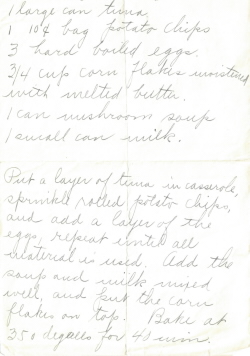 1 large can tuna
1 10¢ bag potato chips
3 hard boiled eggs.
3/4 cup corn flakes moistened
with melted butter.
1 can mushroom soup
1 small can milk.
Put a layer of tuna in casserole,
sprinkle rolled potato chips,
and add a layer of the
eggs, repeat until all
material is used. Add the
soup and milk mixed
well, and put the corn
flakes on top. Bake at
350 degrees for 40 min.